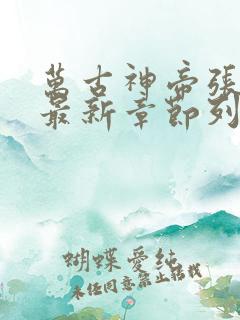 萬古神帝張
最新章節列
蝴蝶愛純
未经同意禁止转载